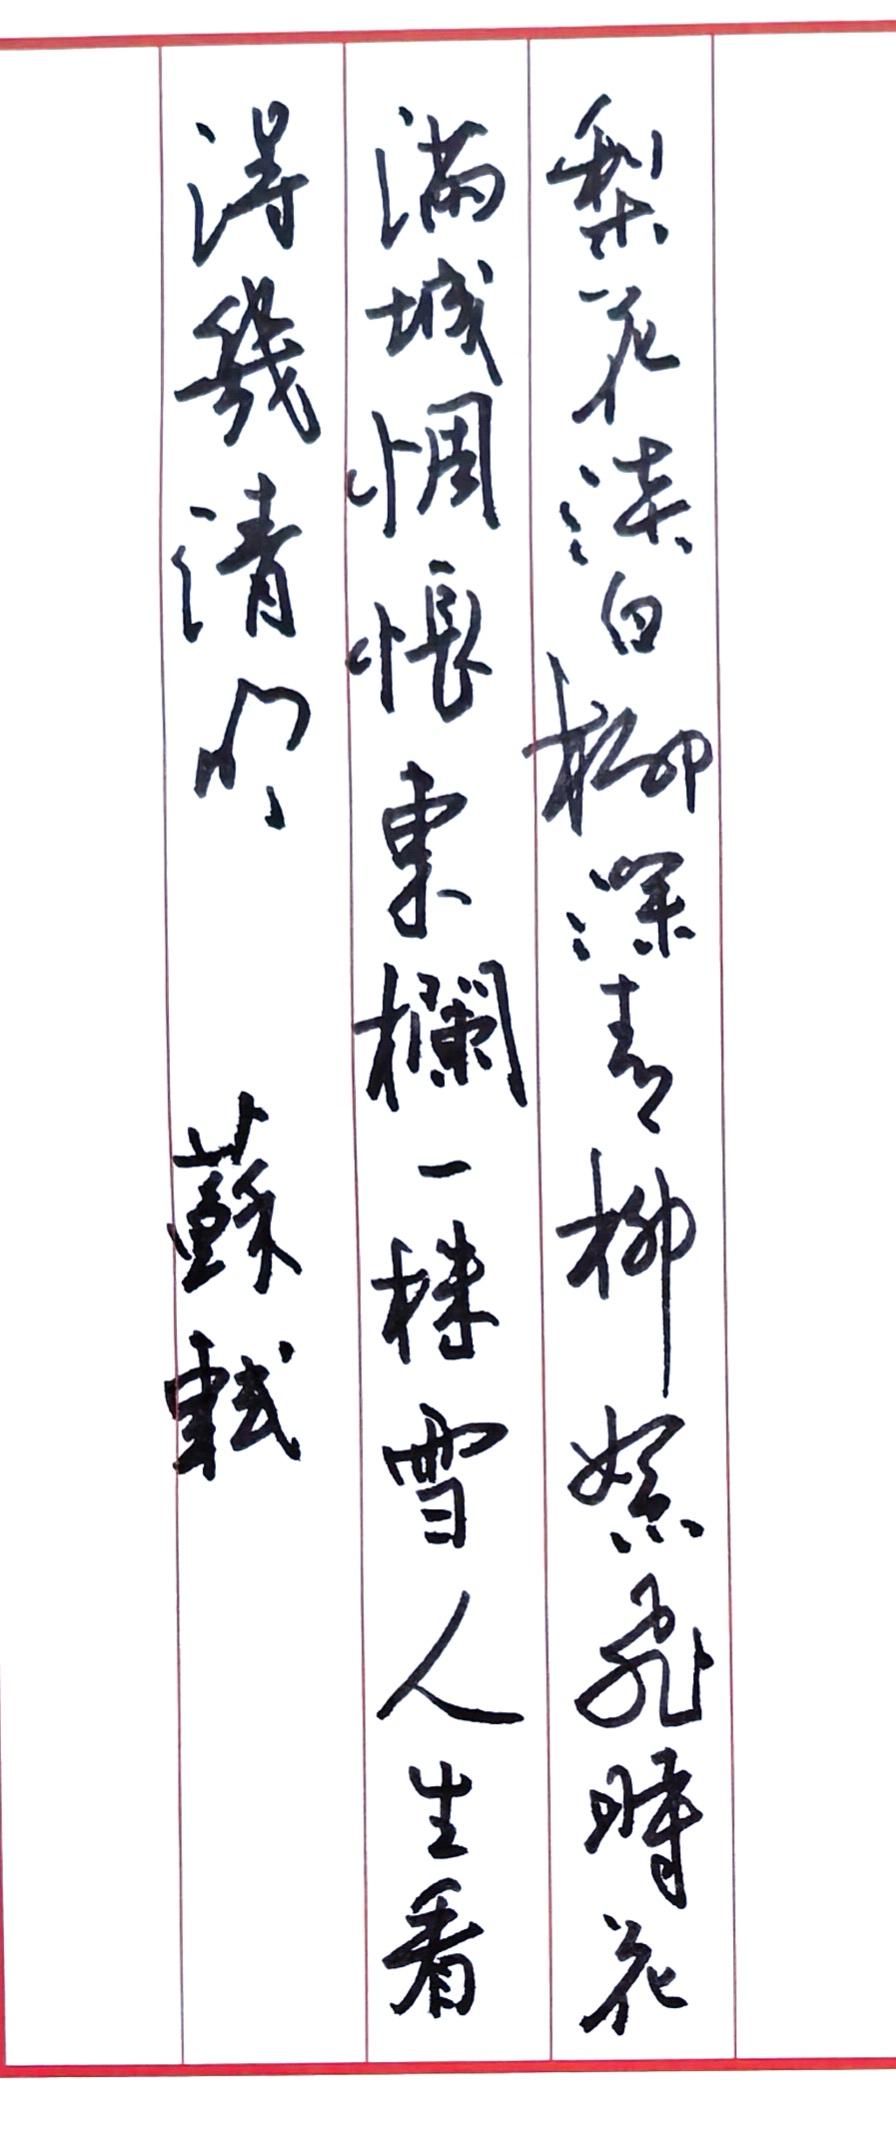 梨花淡白柳深青柳絮飛時花
滿城惆悵東欄一株雪人生看
得幾清明 蘇軾